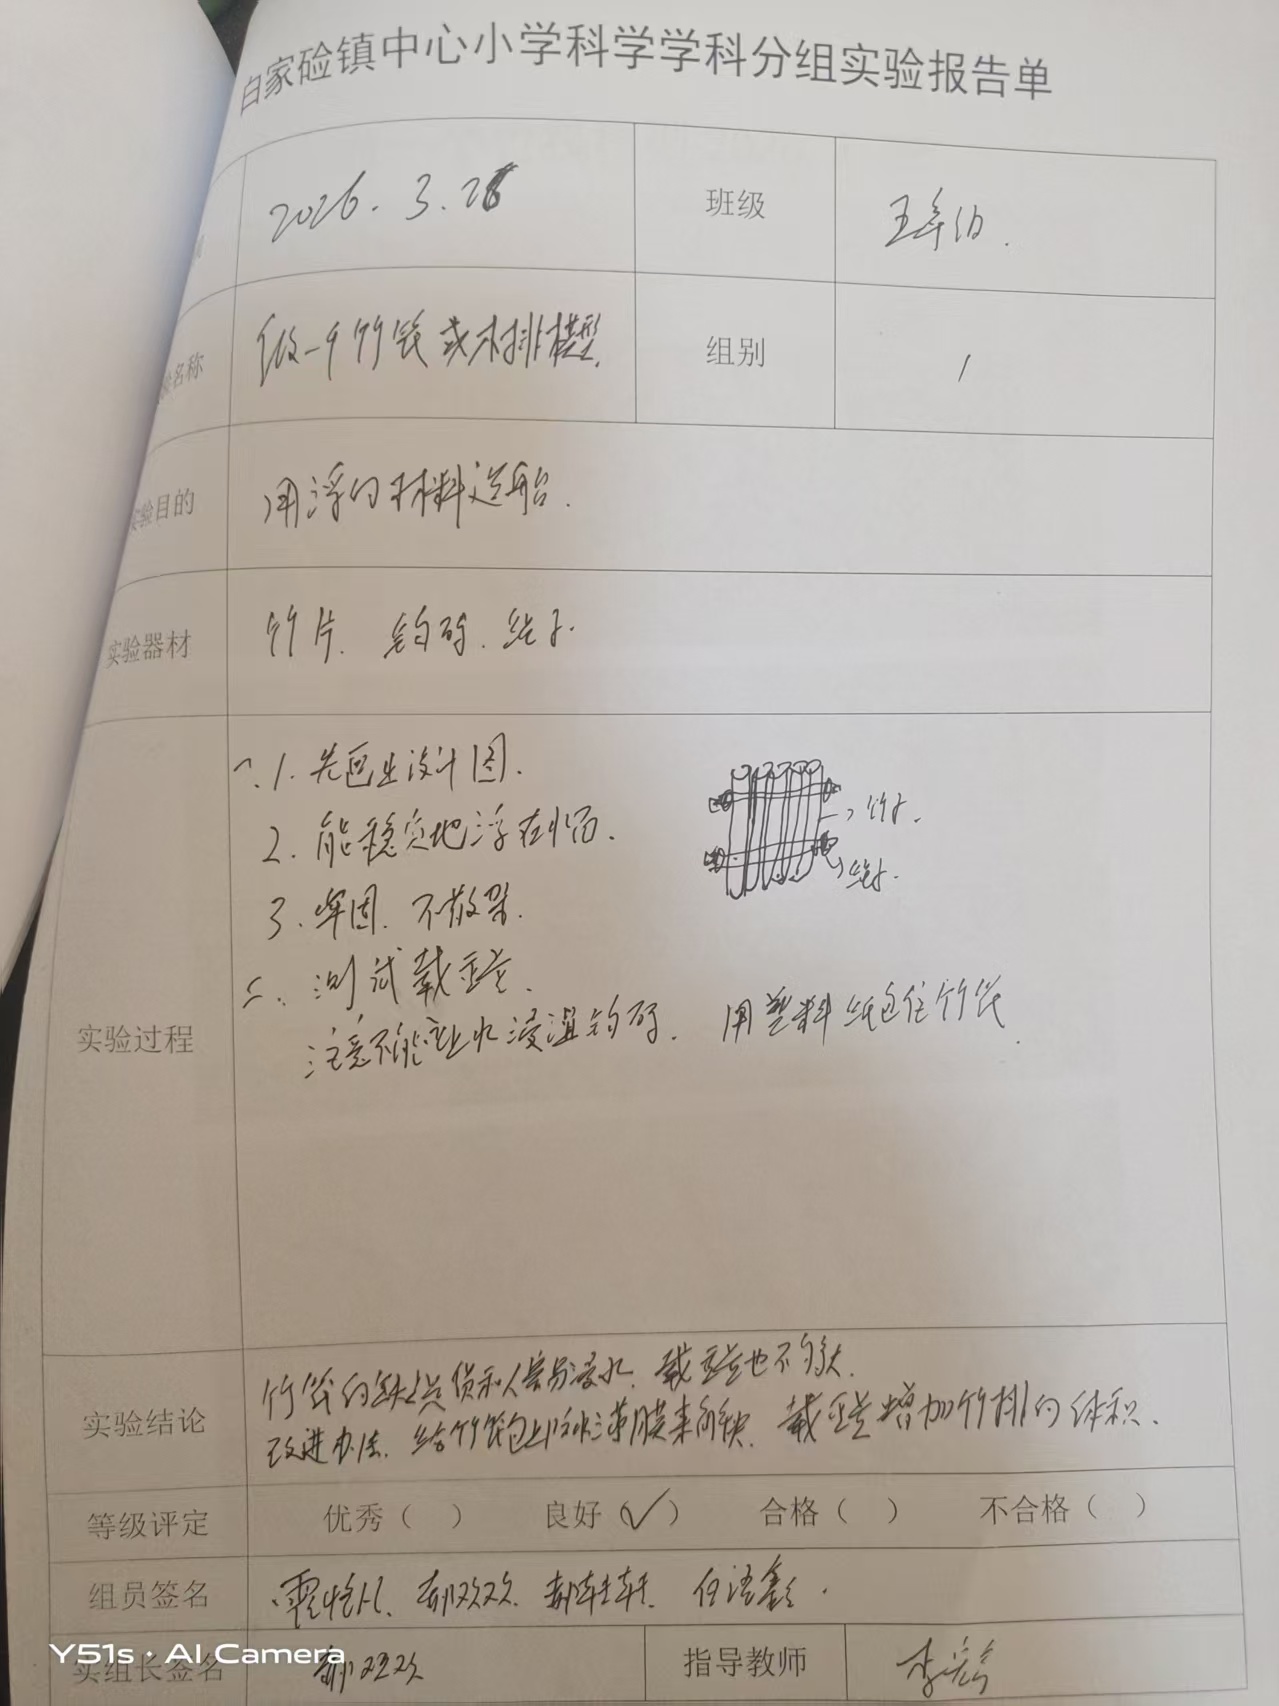 白家硷镇中心小学科学学科分组实验报告单
2026.3.26 班级 五年级.
名称 做一个竹筏或木排模型. 组别 1
实验目的 用浮的材料造船.
实验器材 竹片. 钩码. 绳子.
一.1.先画出设计图.
2.能稳定地浮在水面.
→竹片.
→绳子.
3.牢固.不散架.
二.测试载重量.
实验过程 注意不能让水浸湿钩码. 用塑料纸包住竹筏.
竹筏的缺点货和人容易浸水.载重量也不够大.
实验结论 改进办法.给竹筏包上防水薄膜来解决.载重量增加竹排的体积.
等级评定 优秀( ) 良好(√) 合格( ) 不合格( )
组员签名 郝欢欢. 郝轩轩. 任语鑫.
Y51s·AI Camera
实组长签名 郝欢欢 指导教师